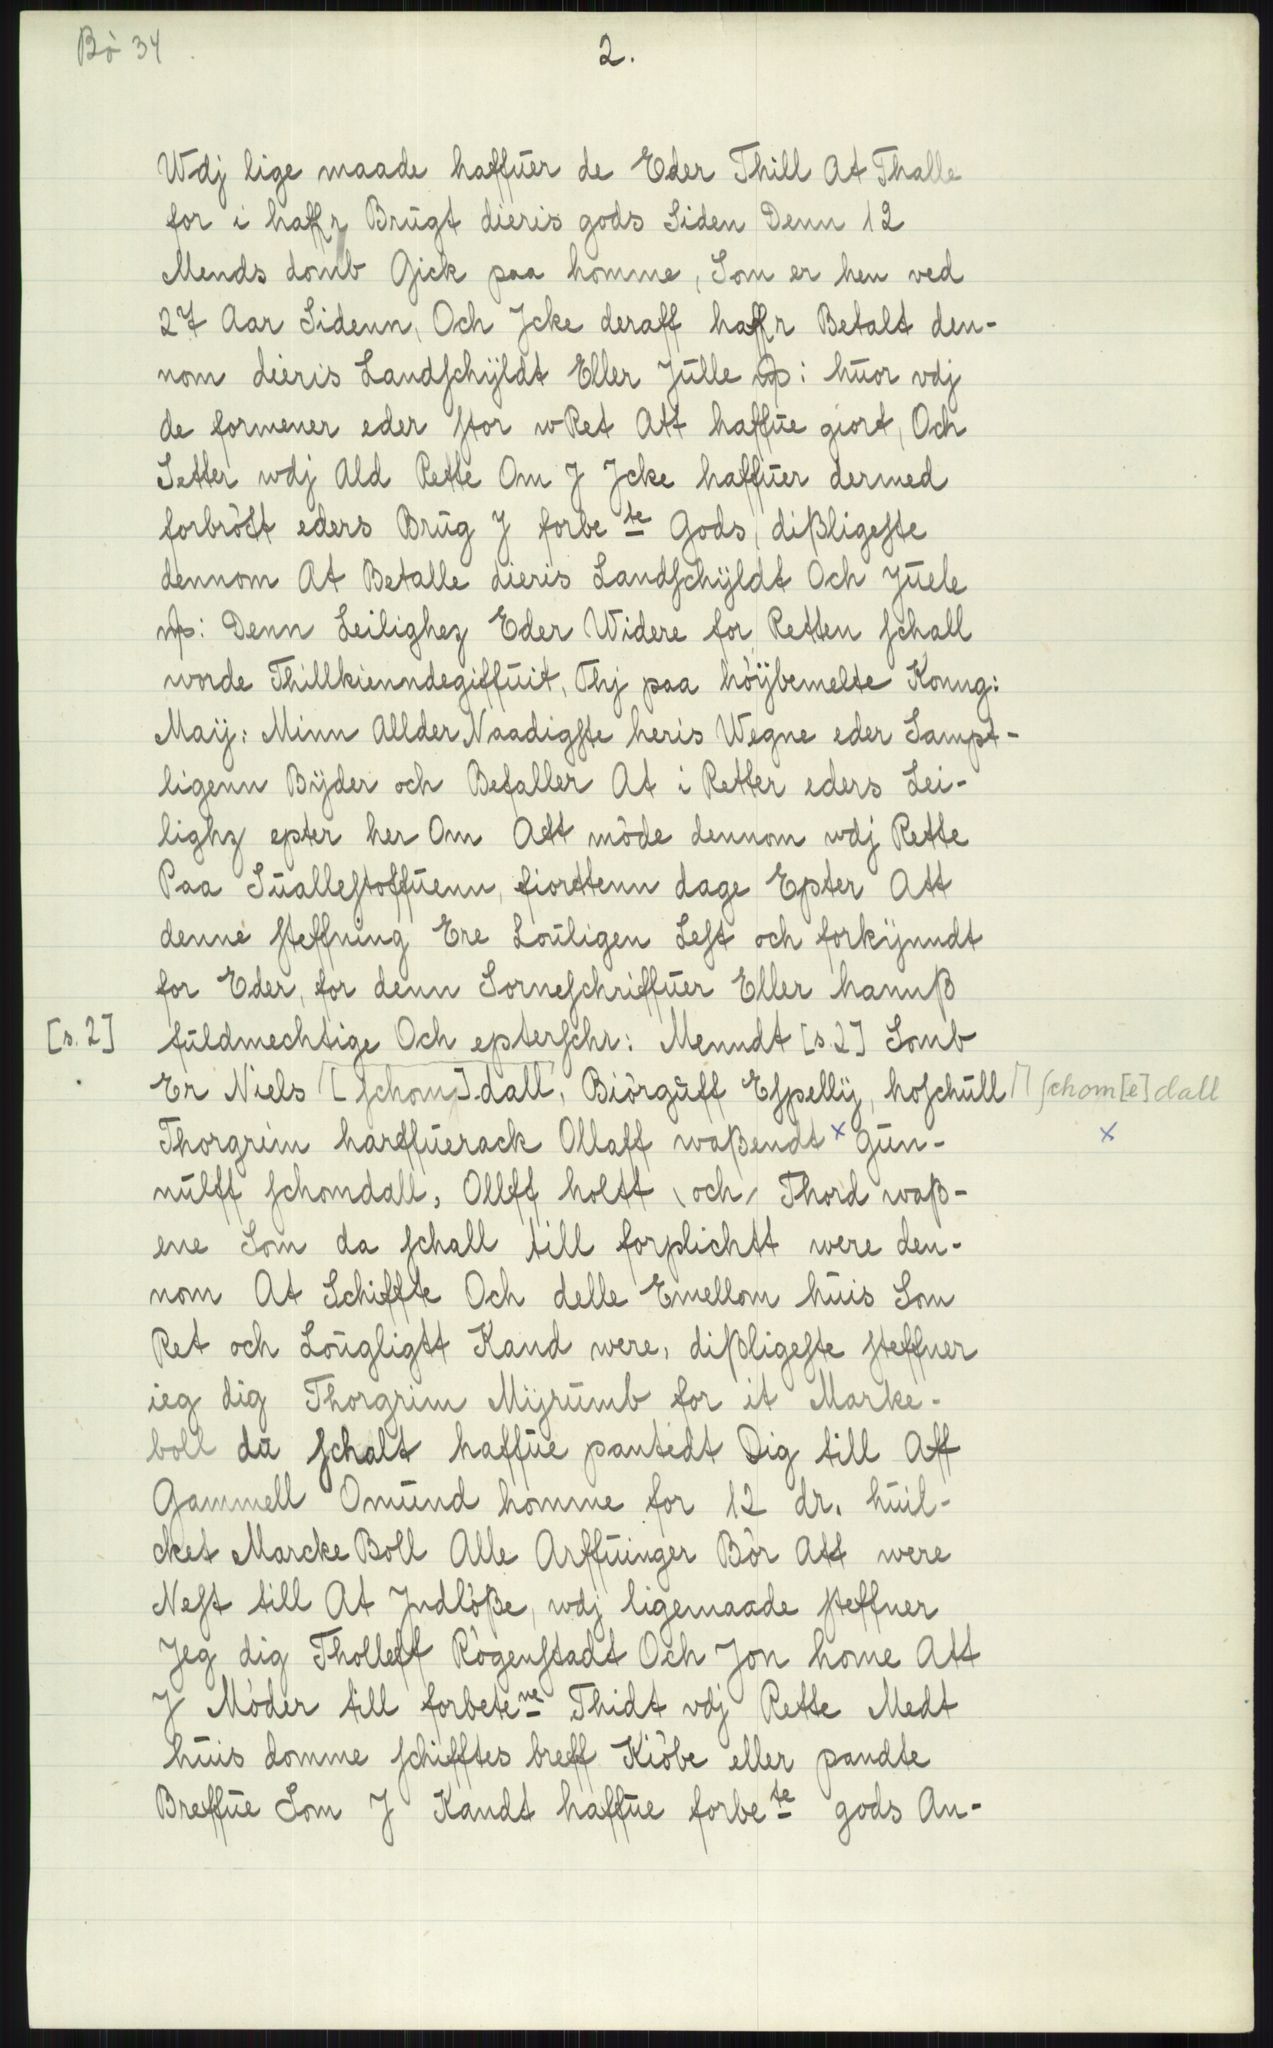 Bö 34
2.
Wdj lige maade haffuer de Eder Thill At Thalle
for i haffr Brugt dieris gods Siden Denn 12
Mends domb Gick paa homme, Som er hen ved
27 Aar Sidenn, Och Jcke deraff haffr Betalt den-
nom dieris Landschÿldt Eller Julle : huor vdj
de formener eder stor wRet Att haffue giort, Och
Setter wdj Ald Rette Om J Jcke haffuer dermed
forbrött eders Brug J forbe te Gods, dißligeste
dennom At Betalle dieris Landschÿldt Och Juele
: Denn Leilighez Eder Widere for Retten schall
worde Thillkienndegiffuit, Thj paa höÿbemelte Konng:
Maÿ: Minn Allder Naadigste heris Wegne eder Sampt-
ligenn Bÿder och Befaller At i Retter eders Lei-
lighz epter her Om Att möde dennom wdj Rette
Paa Suallestoffuenn, fiorttenn dage Epter Att
denne steffning Ere Louligen Lest och forkÿnndt
for Eder, for denn Sorneschriffuer Eller hannß
[s. 2] fuldmechtige Och epterschr: Menndt [s. 2] Somb
Er Niels [schom]dall, Biörguff Espellÿ, hoschull schom[e]dall
Thorgrim harffuerack Ollaff waßendt x Gun- x
nulff schomdall, Ollff holtt och Thord waß-
ene Som da schall till forplichtt were den-
nom At Schiffte Och delle Emellom huis Som
Ret och Lougligtt Kand were, dißligeste steffner
ieg dig Thorgrim Mÿrumb for it Marke-
boll du schalt haffue pantedt Dig till Aff
Gammell Omund homme for 12 dr. huil-
cket Marcke Boll Alle Arffuinger Bör Att were
Nest till At Jndlöße, wdj ligemaade steffner
Jeg dig Tholleff Rögenstadt Och Jon home Att
J Möder till forbete ne Thidt vdj Rette Medt
huis domme schifftes breff Kiöbe eller pandte
Breffue Som J Kandt haffue forbe te gods An-